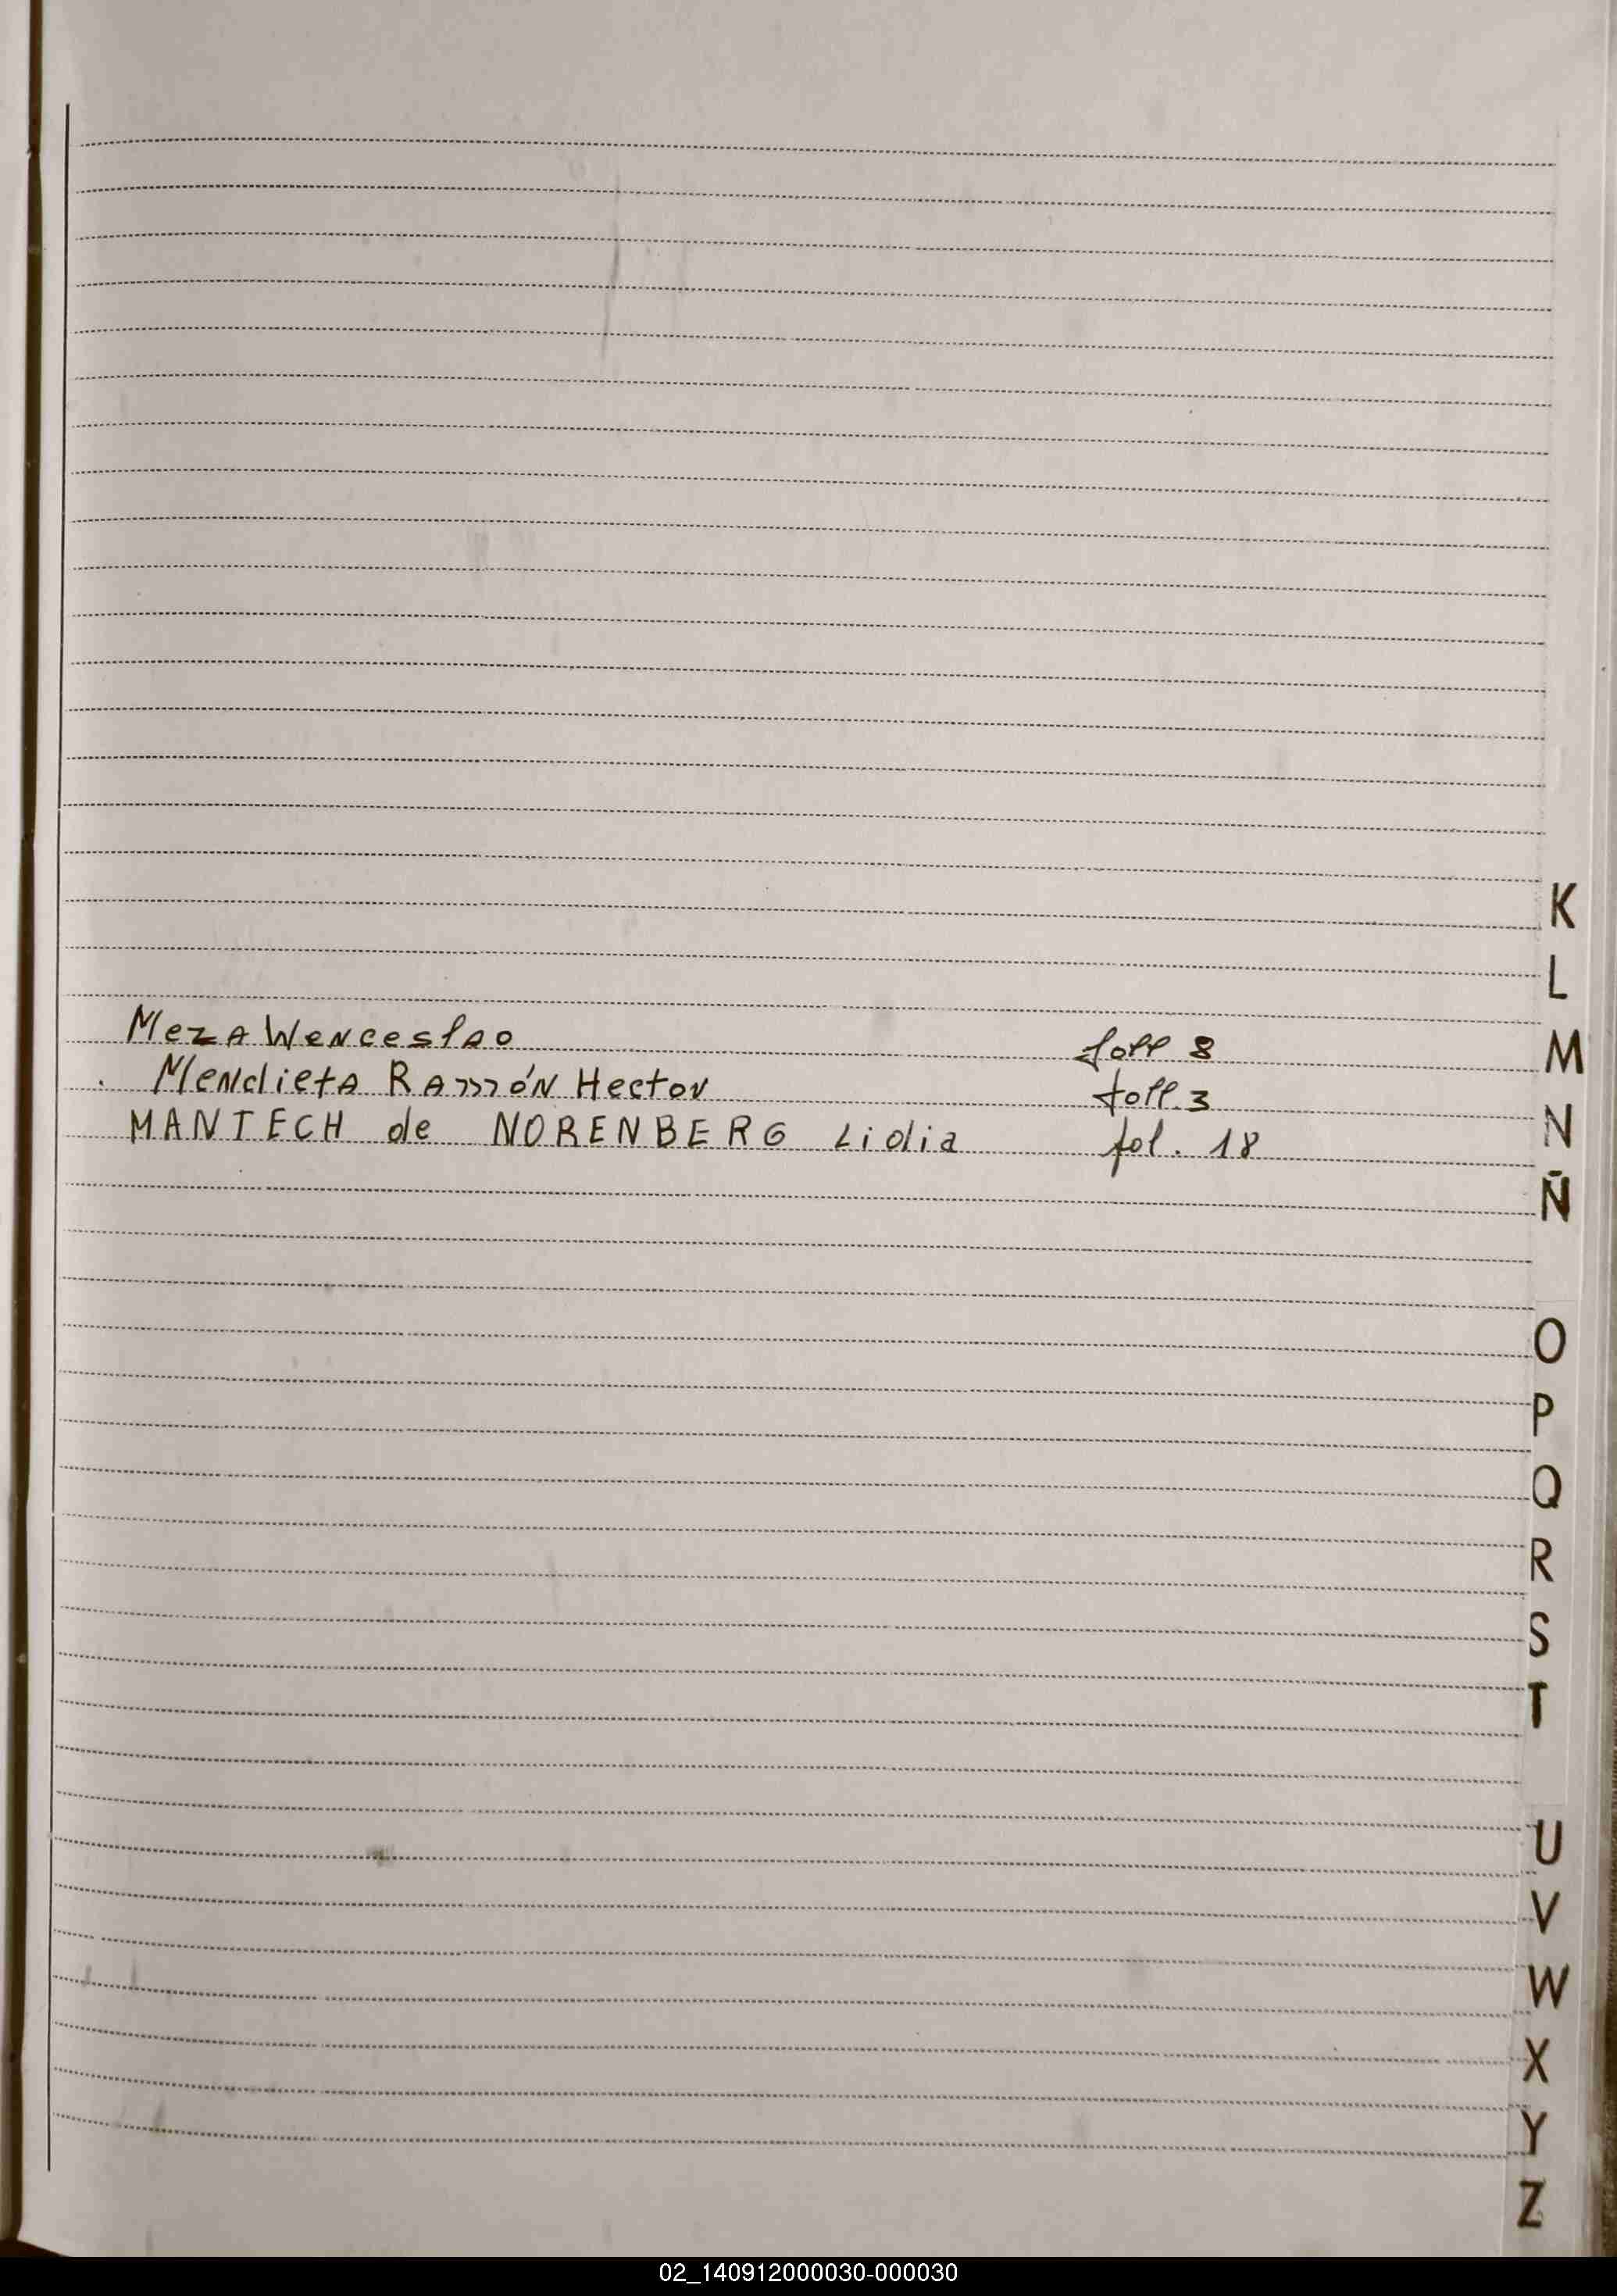 Meza Wenceslao foll 8
. Mendieta Ramón Hector foll. 3
MANTECH de NORENBERG Lidia fol. 18
K
L
M
N
Ñ
O
P
Q
R
S
T
U
V
W
X
Y
Z
02_140912000030-000030